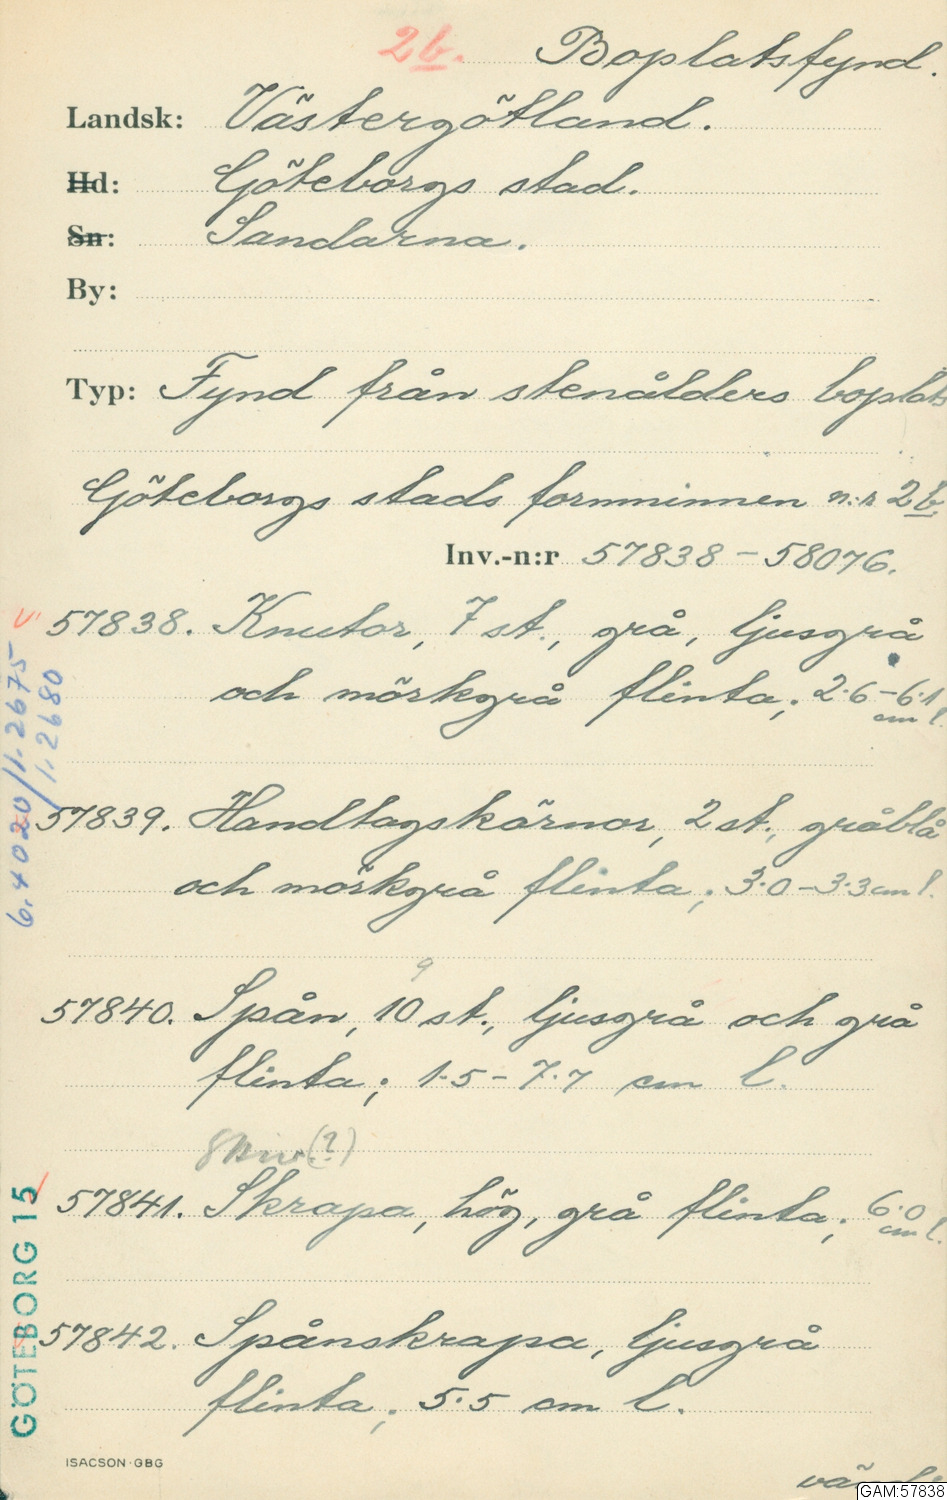 2b. Boplatsfynd.
Landsk: Västergötland.
Hd: Göteborgs stad.
Sn: Sandarna.
By:
Typ: Fynd från stenålders boplats
Göteborgs stads fornminnen n:r 2b.
Inv.-n:r 57838-58076.
57838. Knutor, 7 st., grå, ljusgrå
och mörkgrå flinta; 2.6-6.1
cm l.
57839. Handtagskärnor, 2 st., gråblå
och mörkgrå flinta; 3.0-3.3 cm l.
9
57840. Spån, 10 st., ljusgrå och grå
flinta; 1.5-7.7 cm l.
(?)
57841. Skrapa, hög, grå flinta; 6.0
cm l.
57842. Spånskrapa, ljusgrå
flinta; 5.5 cm l.
ISACSON·GBG
GÖTEBORG 15
6.4020/1.2675
/1.2680
GAM:57838